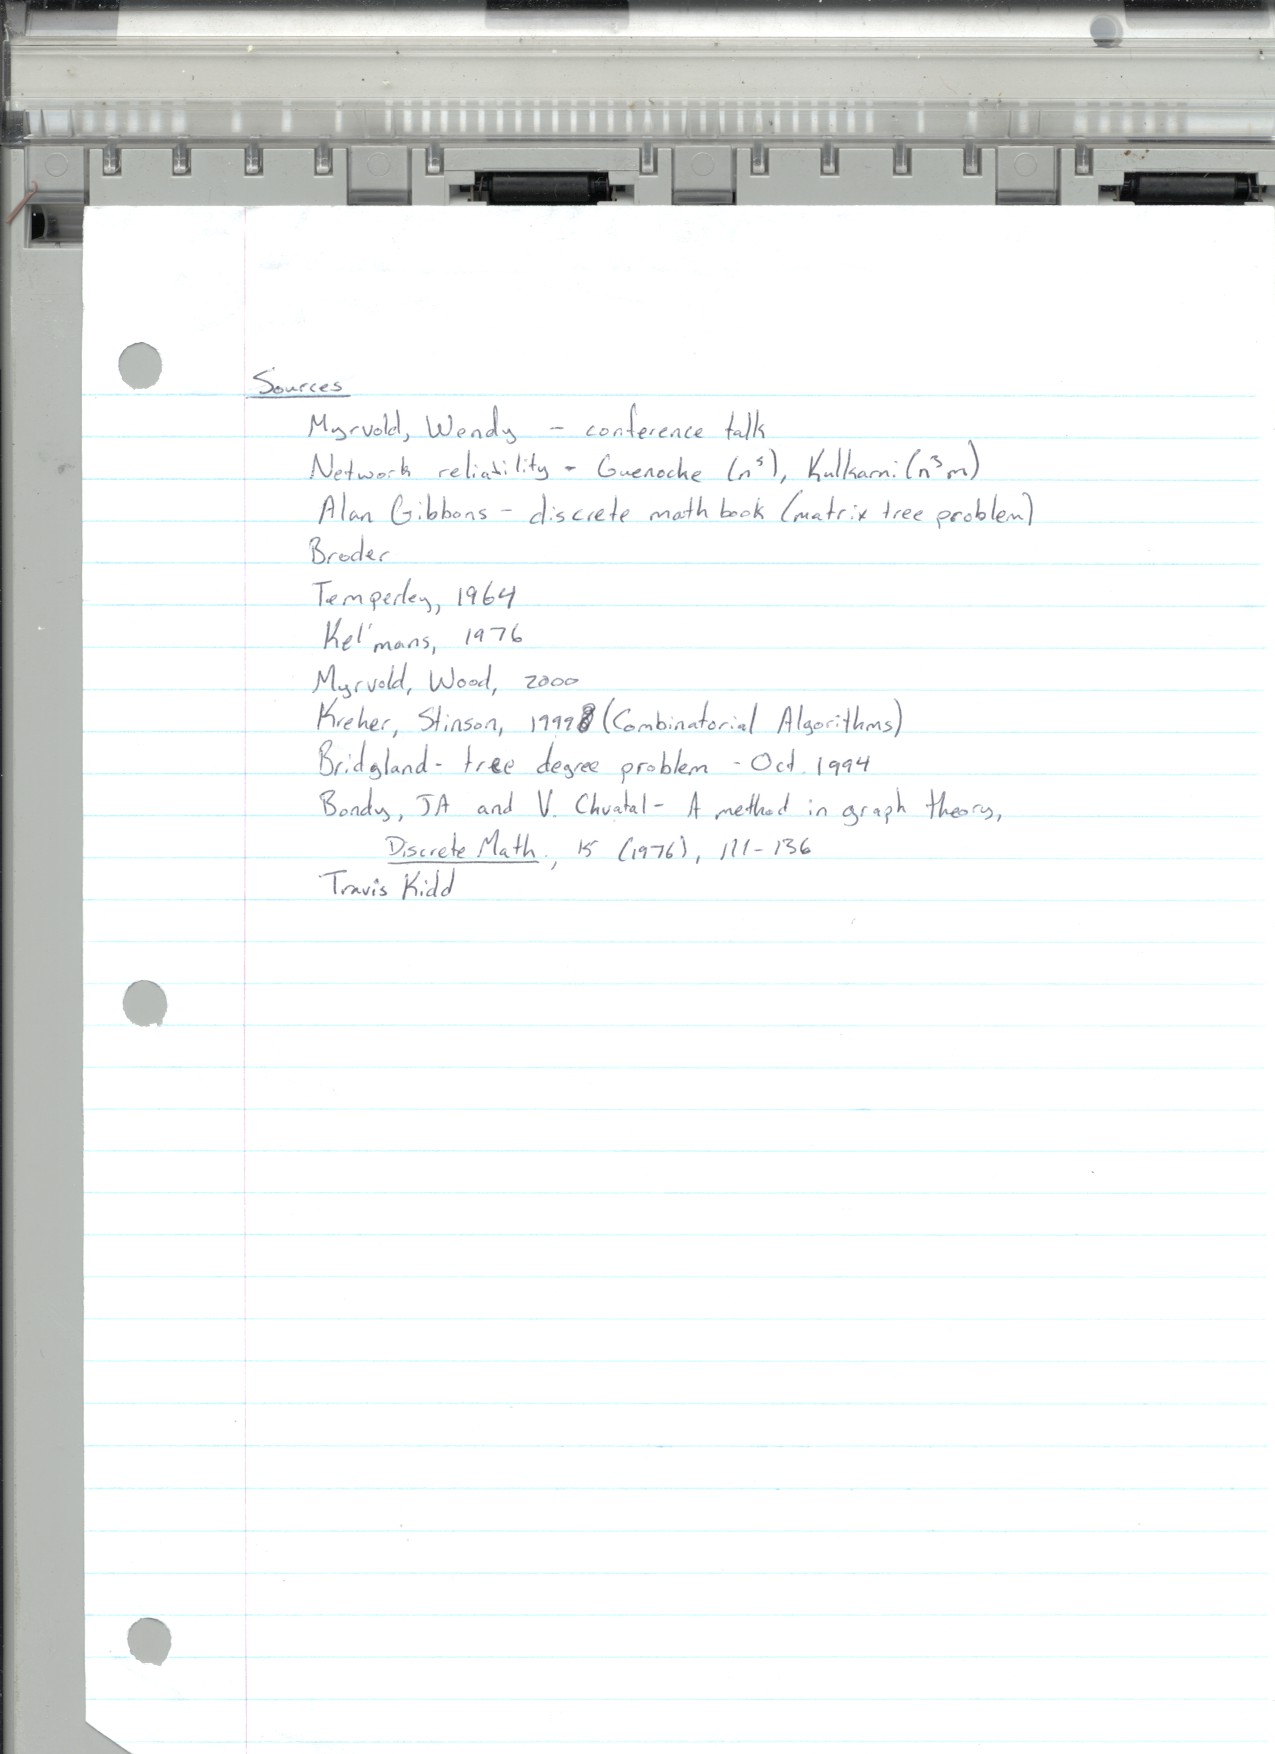 Sources
Myrvold, Wendy - conference talk
Network reliability - Guenoche (n⁵), Kulkarni (n³m)
Alan Gibbons - discrete math book (matrix tree problem)
Broder
Temperley, 1964
Kel'mans, 1976
Myrvold, Wood, 2000
Kreher, Stinson, 1999 (Combinatorial Algorithms)
Bridgland - tree degree problem - Oct. 1994
Bondy, JA and V. Chvatal - A method in graph theory,
Discrete Math., 15 (1976), 111-136
Travis Kidd